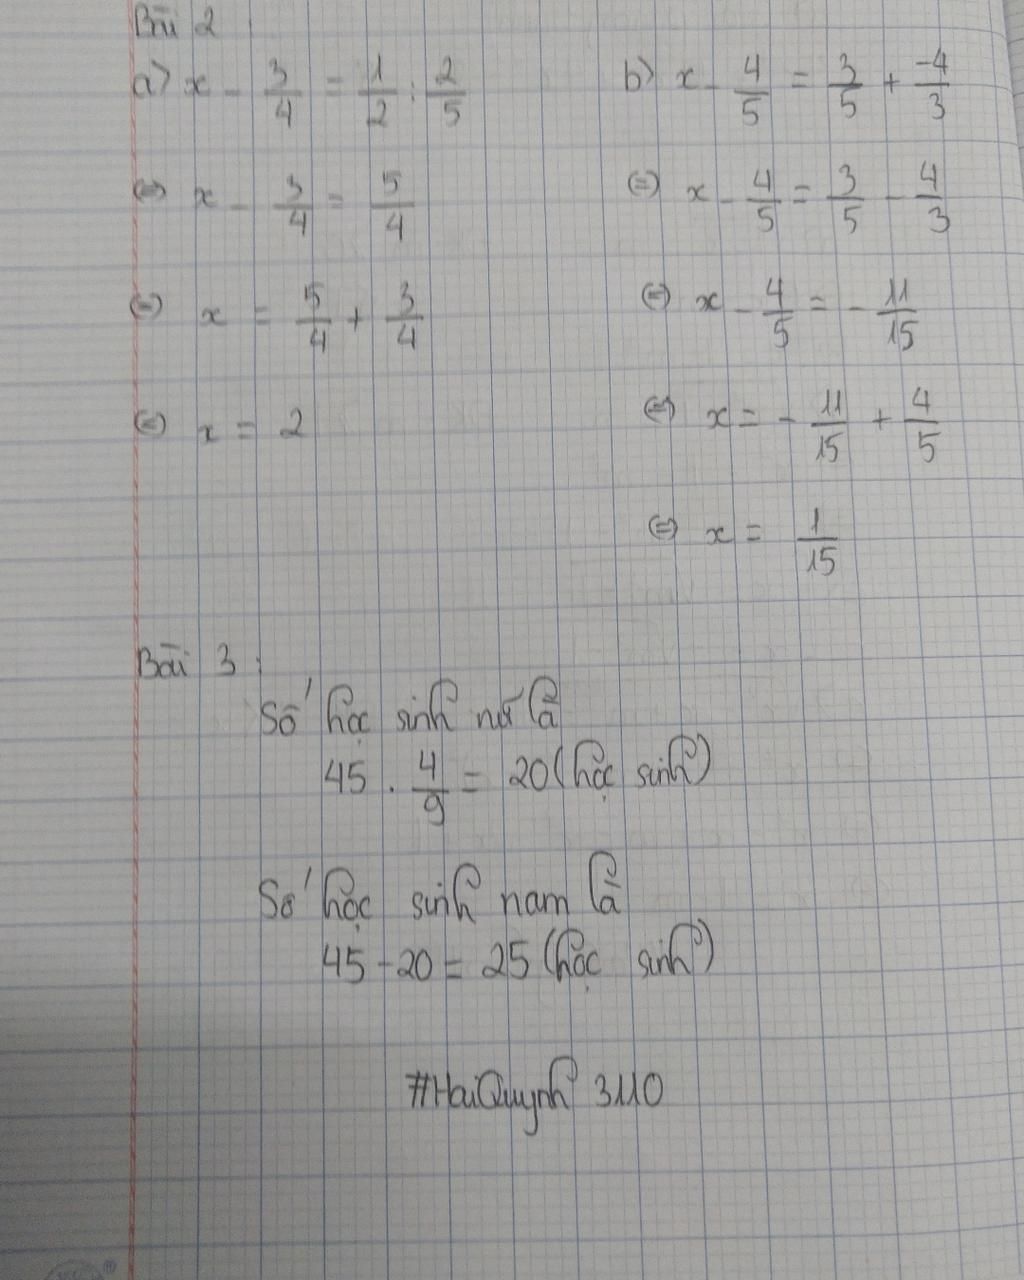 Bài 2
a) x - 3/4 = 1/2 : 2/5
(=) x - 3/4 = 5/4
(=) x = 5/4 + 3/4
(=) x = 2
b) x - 4/5 = 3/5 + -4/3
(=) x - 4/5 = 3/5 - 4/3
(=) x - 4/5 = - 11/15
(=) x = - 11/15 + 4/5
(=) x = 1/15
Bài 3:
Số học sinh nữ là
45 . 4/9 = 20 (học sinh)
Số học sinh nam là
45 - 20 = 25 (học sinh)
#HaiQuynh 3110